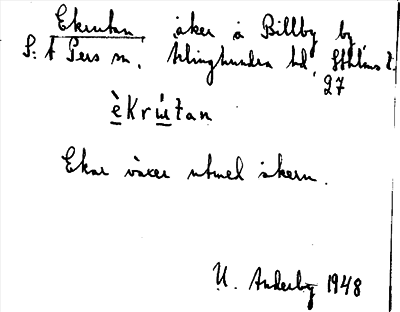 Ekrutan åker å Billby by,
S:t Pers sn, Ærlinghundra hd, Sthlms l.
27
èkrùtan
Ekar växer utmed åkern.
U. Anderby 1948